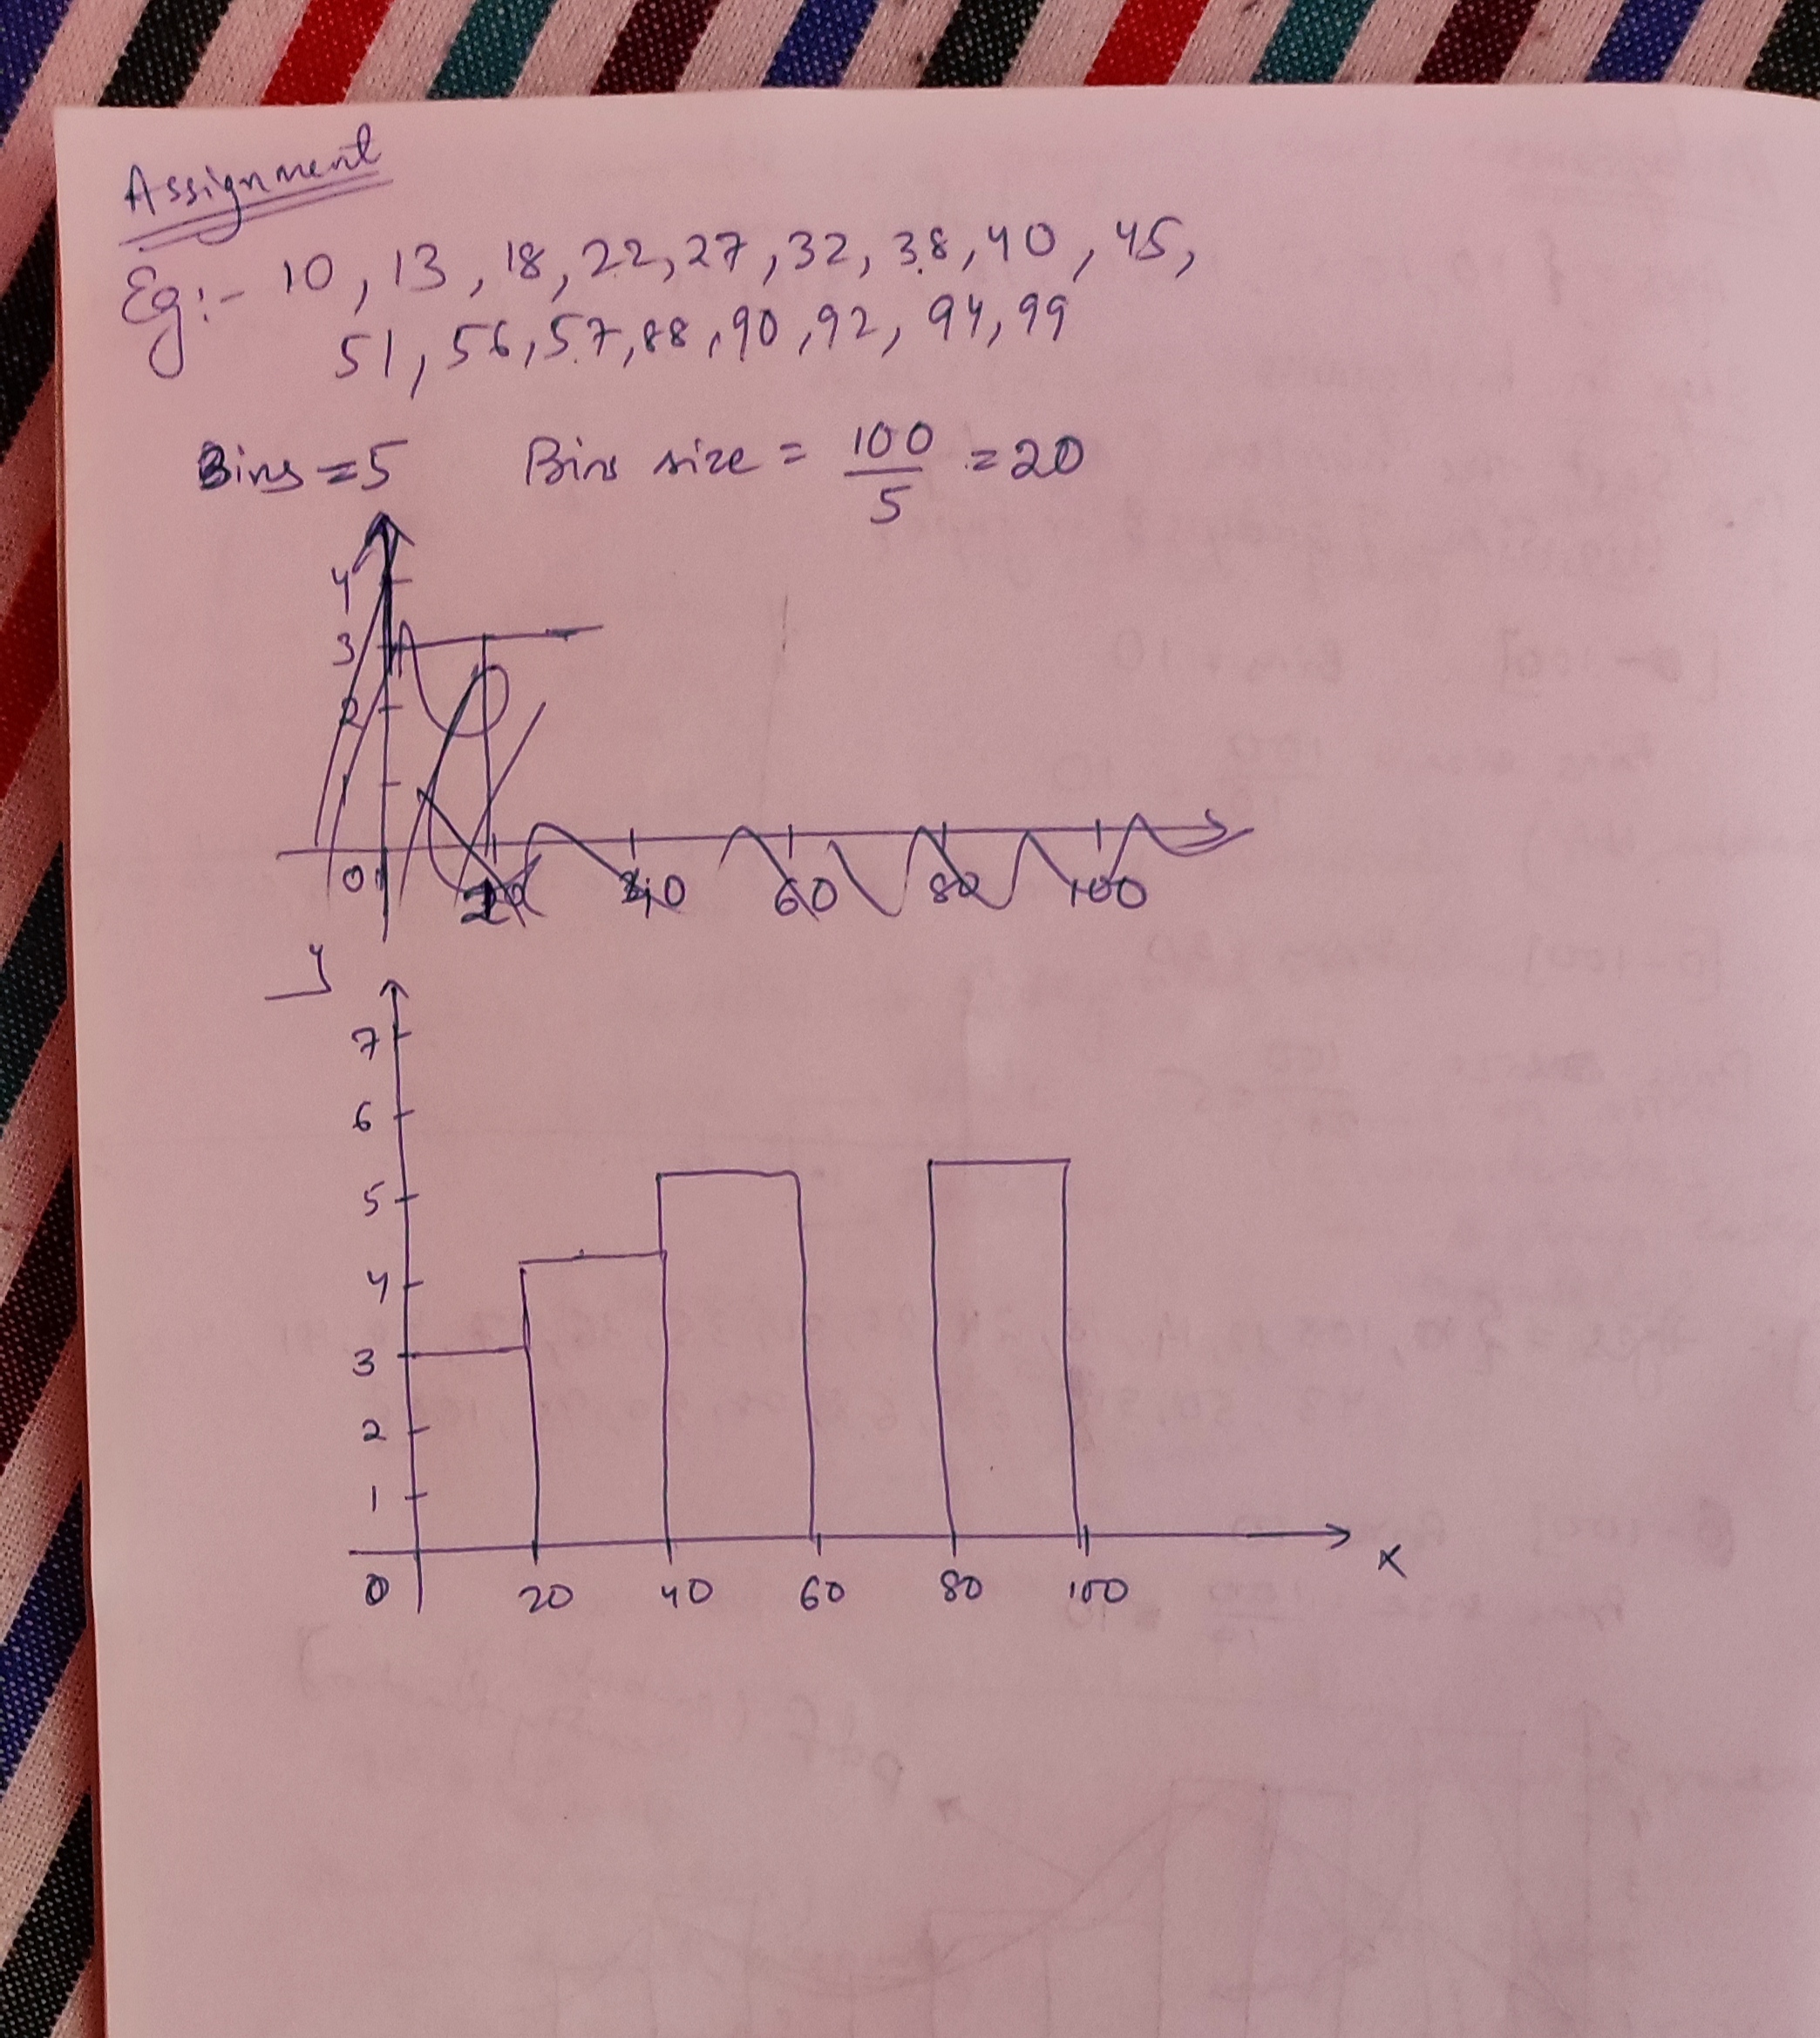 Assignment
Eg:- 10, 13, 18, 22, 27, 32, 38, 40, 45,
51, 56, 57, 88, 90, 92, 94, 99
Bins = 5 Bins size = 100/5 = 20
4
3
2
1
0 20 40 60 80 100
y
7
6
5
4
3
2
1
0 20 40 60 80 100 x